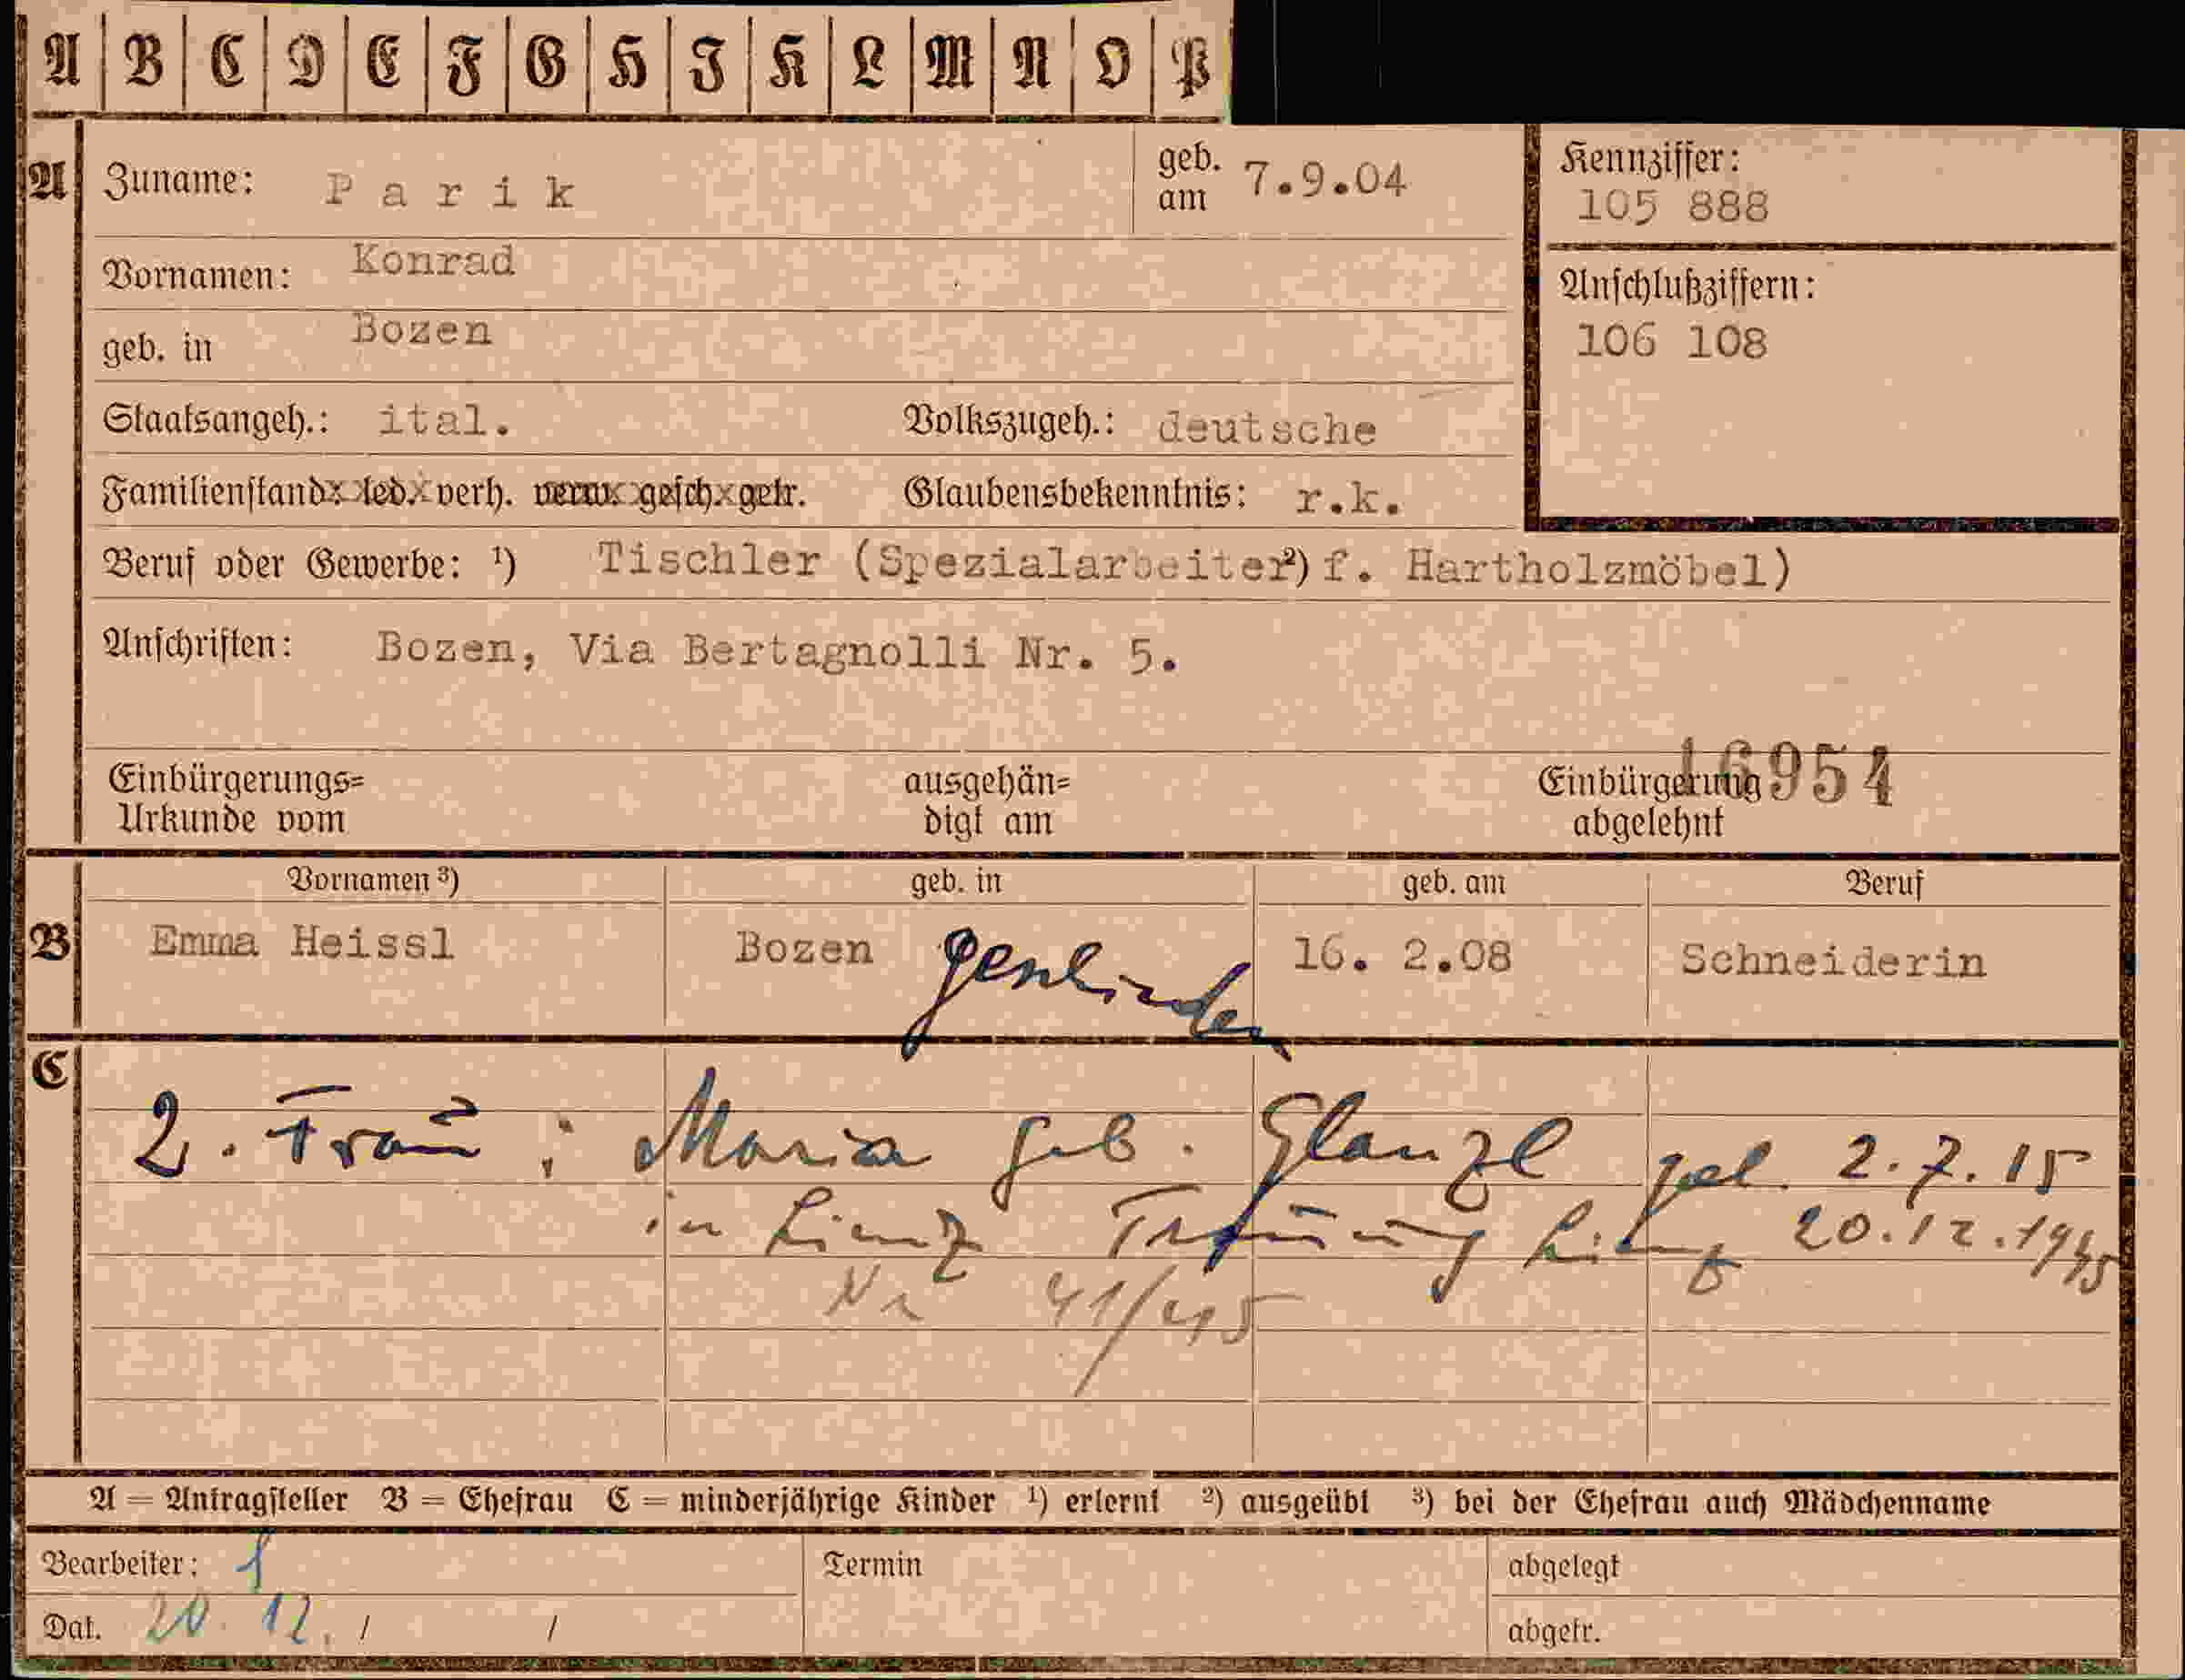 A B C D E F G H I K L M N O P
A Zuname: Parik geb. am 7.9.04
Kennziffer:
105 888
Vornamen: Konrad
Anschlußziffern:
106 108
geb. in Bozen
Staatsangeh.: ital. Volkszugeh.: deutsche
Familienstand: led. verh. verw. gesch. getr. Glaubensbekenntnis: r.k.
Beruf oder Gewerbe: ¹) Tischler (Spezialarbeiter ²) f. Hartholzmöbel)
Anschriften: Bozen, Via Bertagnolli Nr. 5.
16954
Einbürgerungs= ausgehän= Einbürgerung
Urkunde vom digt am abgelehnt
Vornamen ³) geb. in geb. am Beruf
B Emma Heissl Bozen 16. 2.08 Schneiderin
C
2. Frau: Maria geb. Glanzl geb. 2.7.15
in Lienz Trauung Lienz 20.12.1945
Nr 41/415
A = Antragsteller B = Ehefrau C = minderjährige Kinder ¹) erlernt ²) ausgeübt ³) bei der Ehefrau auch Mädchenname
Bearbeiter: Termin abgelegt
Dat. 20. 12. / / abgetr.